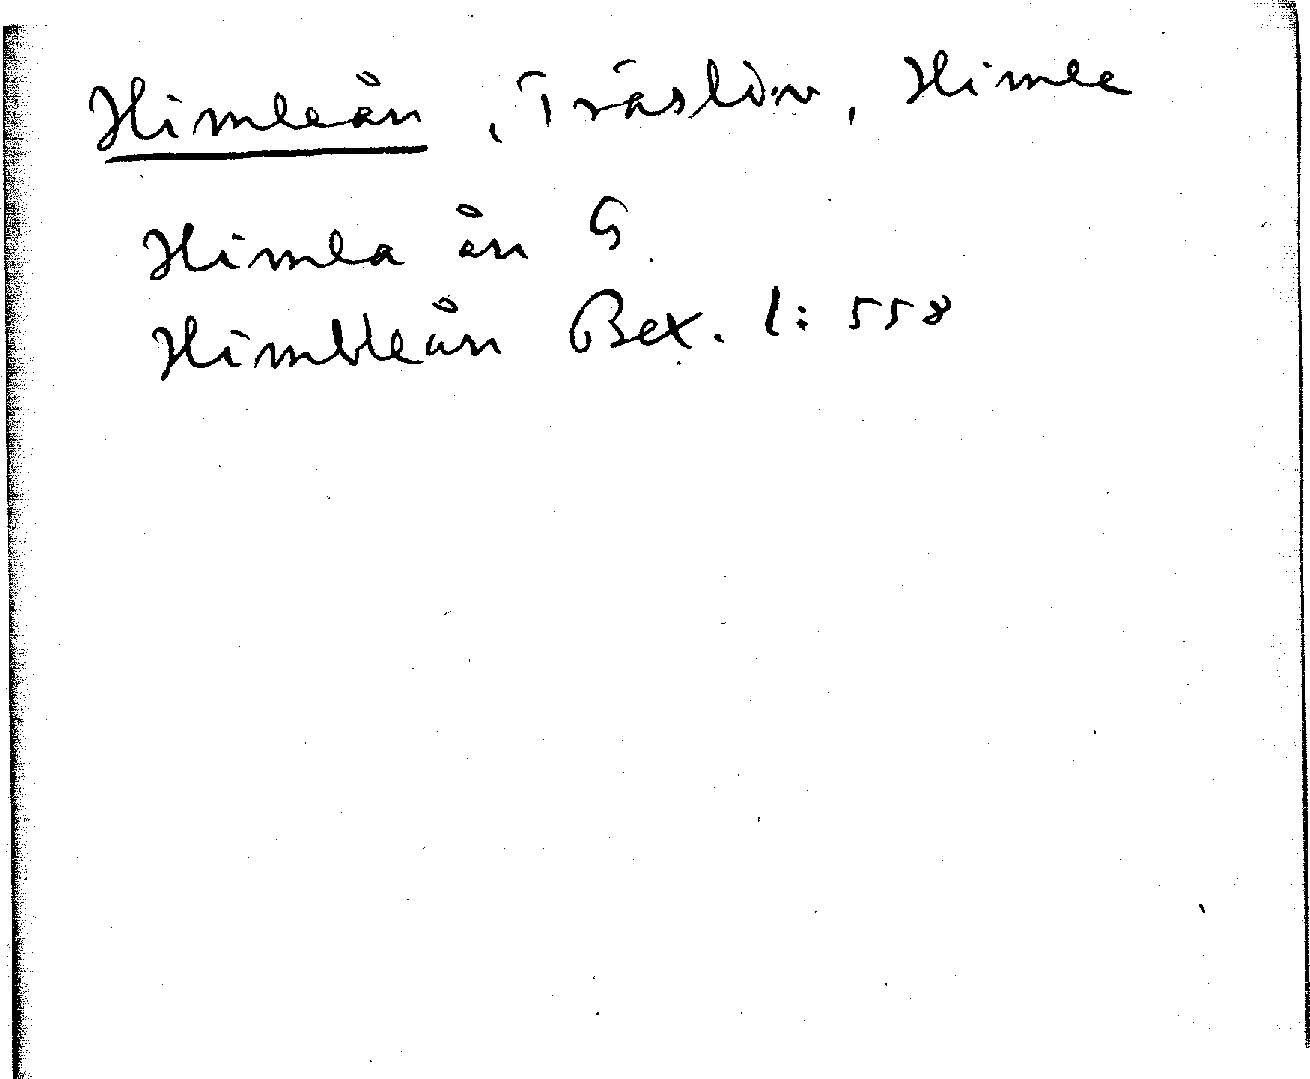 Himleån, Träslöv, Himle
Himla ån G.
Himbleån Bex. 1: 558